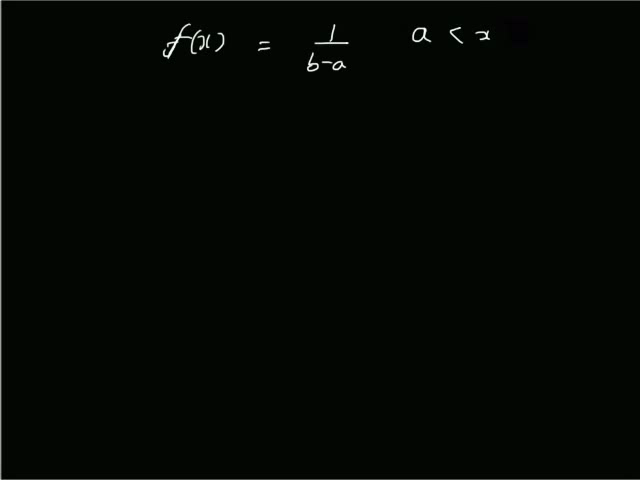 f(x) = 1/(b-a) a < x